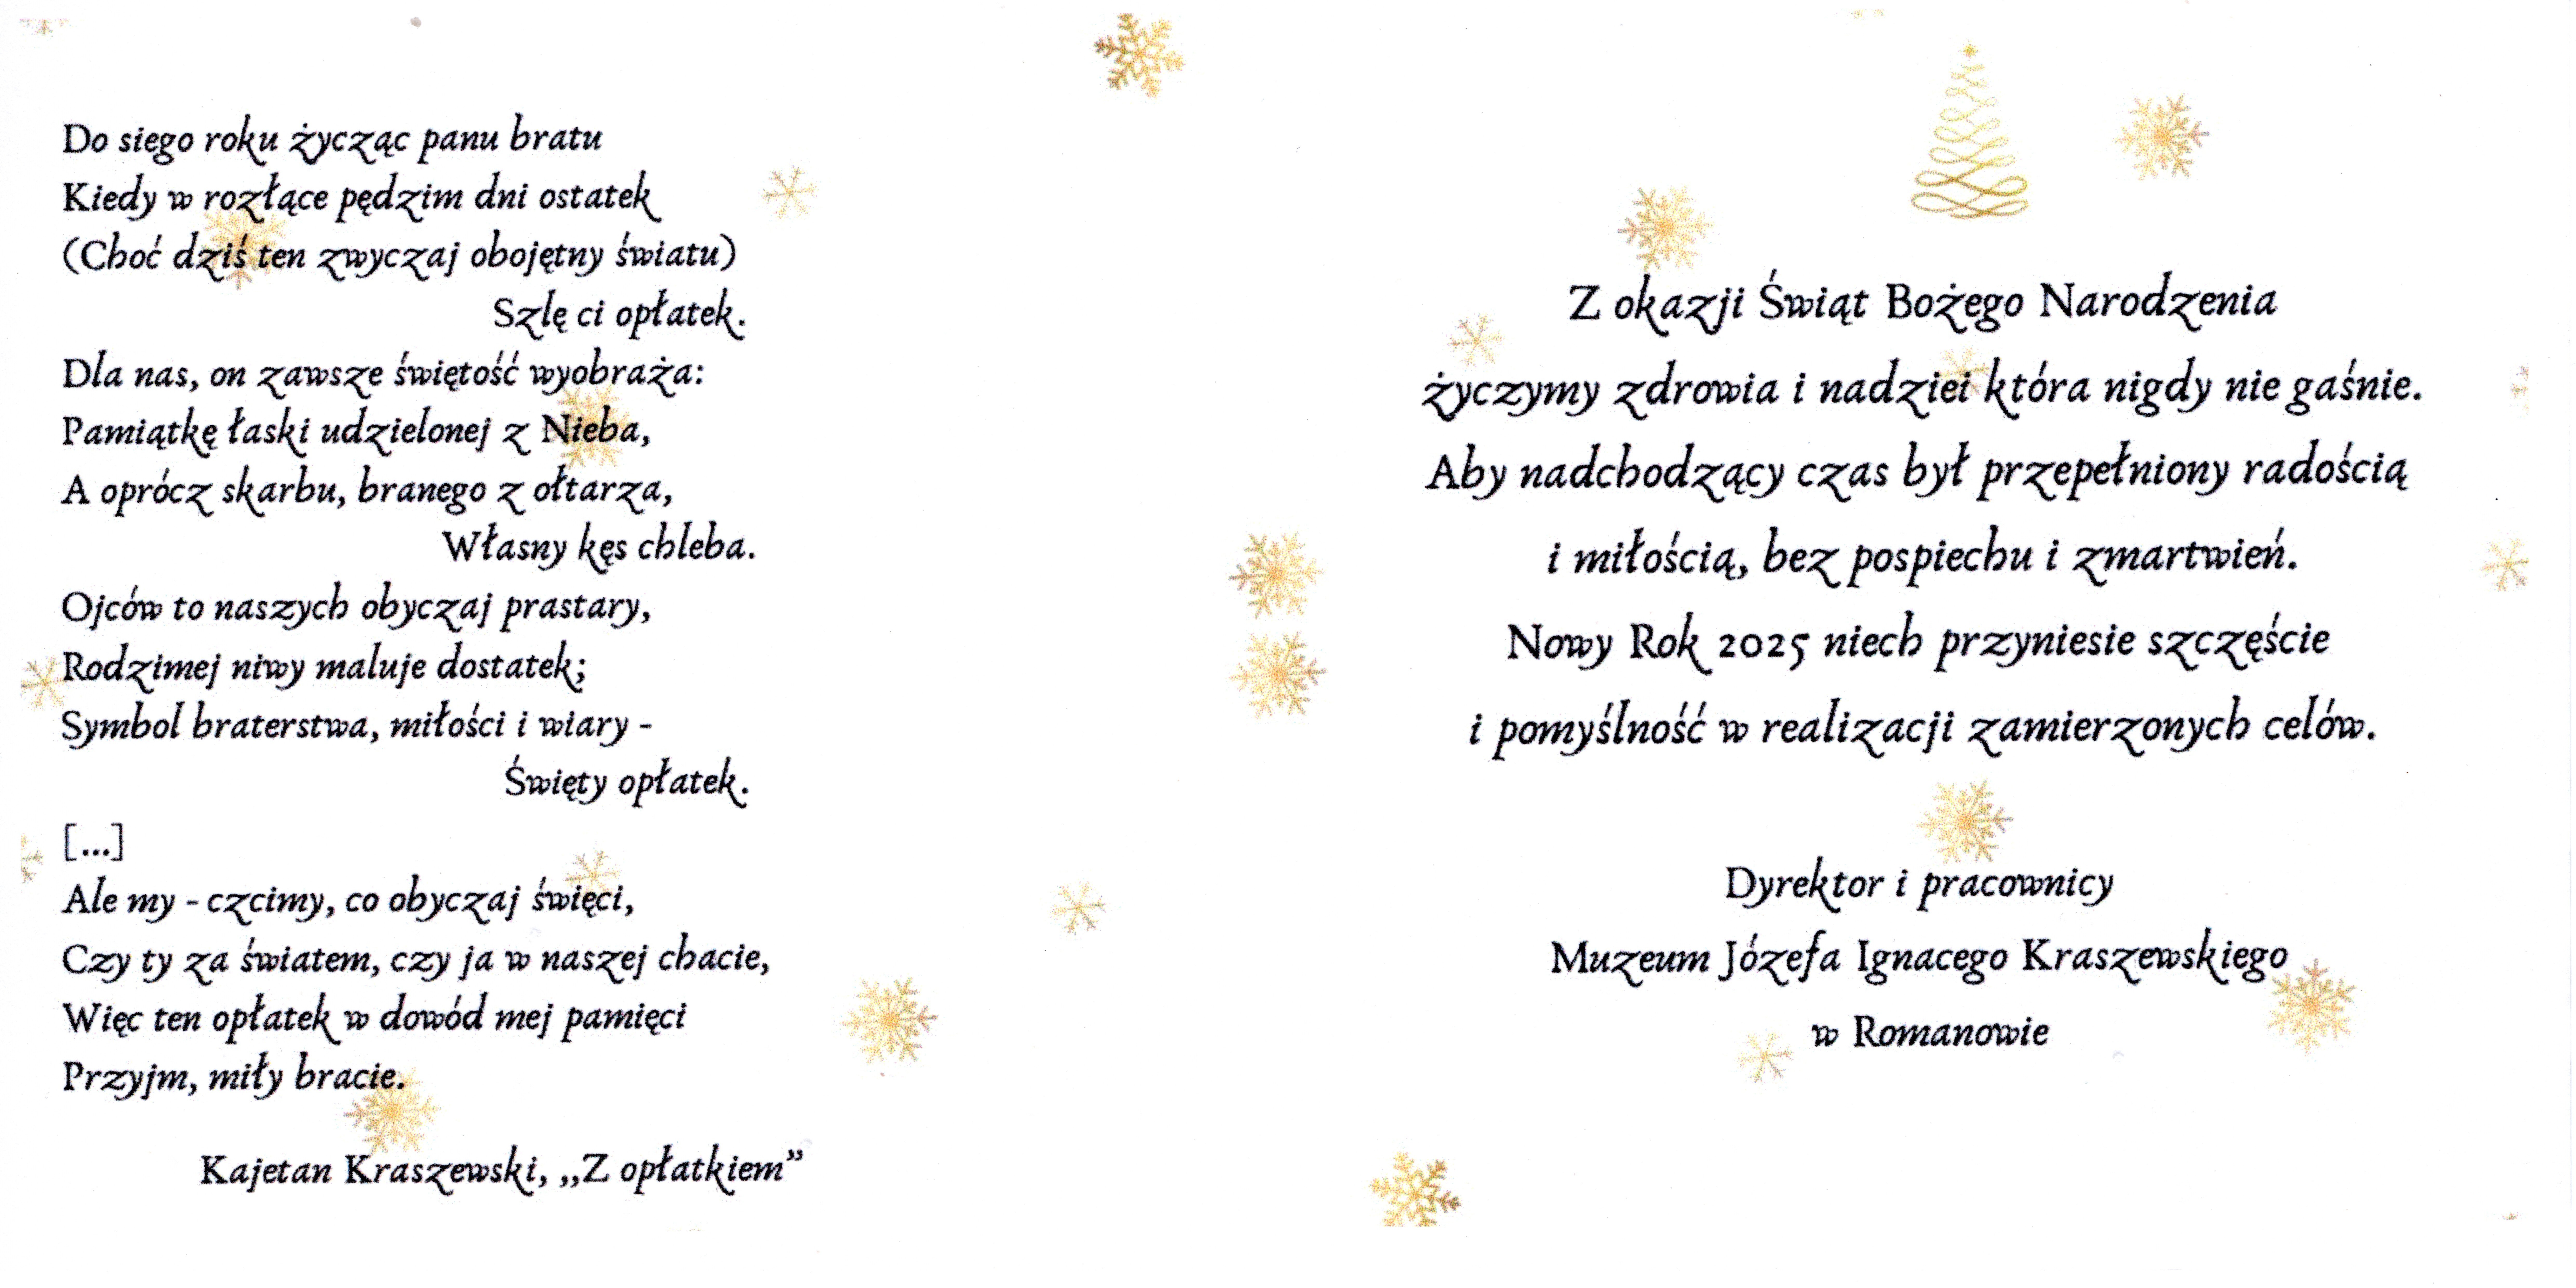 Do siego roku życząc panu bratu
Kiedy w rozłące pędzim dni ostatek
(Choć dziś ten zwyczaj obojętny światu)
Szlę ci opłatek.
Dla nas, on zawsze świętość wyobraża:
Pamiątkę łaski udzielonej z Nieba,
A oprócz skarbu, branego z ołtarza,
Własny kęs chleba.
Ojców to naszych obyczaj prastary,
Rodzimej niwy maluje dostatek;
Symbol braterstwa, miłości i wiary -
Święty opłatek.
[...]
Ale my - czcimy, co obyczaj święci,
Czy ty za światem, czy ja w naszej chacie,
Więc ten opłatek w dowód mej pamięci
Przyjm, miły bracie.
Kajetan Kraszewski, „Z opłatkiem”
Z okazji Świąt Bożego Narodzenia
życzymy zdrowia i nadziei która nigdy nie gaśnie.
Aby nadchodzący czas był przepełniony radością
i miłością, bez pospiechu i zmartwień.
Nowy Rok 2025 niech przyniesie szczęście
i pomyślność w realizacji zamierzonych celów.
Dyrektor i pracownicy
Muzeum Józefa Ignacego Kraszewskiego
w Romanowie